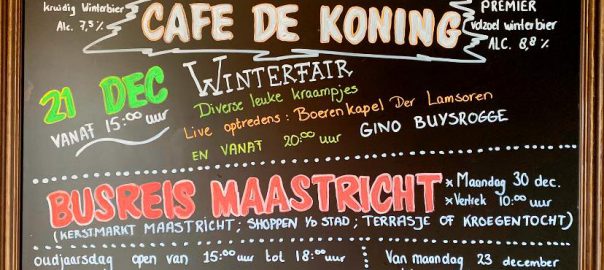 kruidig Winterbier
Alc. 7,5 %
CAFE DE KONING
PREMIER
volzoet winterbier
ALC. 8,8 %
21 DEC
VANAF 15:00 uur
WINTERFAIR
Diverse leuke kraampjes
Live optredens: Boerenkapel Der Lamsoren
EN VANAF 20:00 uur GINO BUYSROGGE
BUSREIS MAASTRICHT
* Maandag 30 dec.
* Vertrek 10:00 uur
(KERSTMARKT MAASTRICHT; SHOPPEN I/D STAD; TERRASJE OF KROEGENTOCHT)
oudjaarsdag open van 15:00 uur tot 18:00 uur
Van maandag 23 december